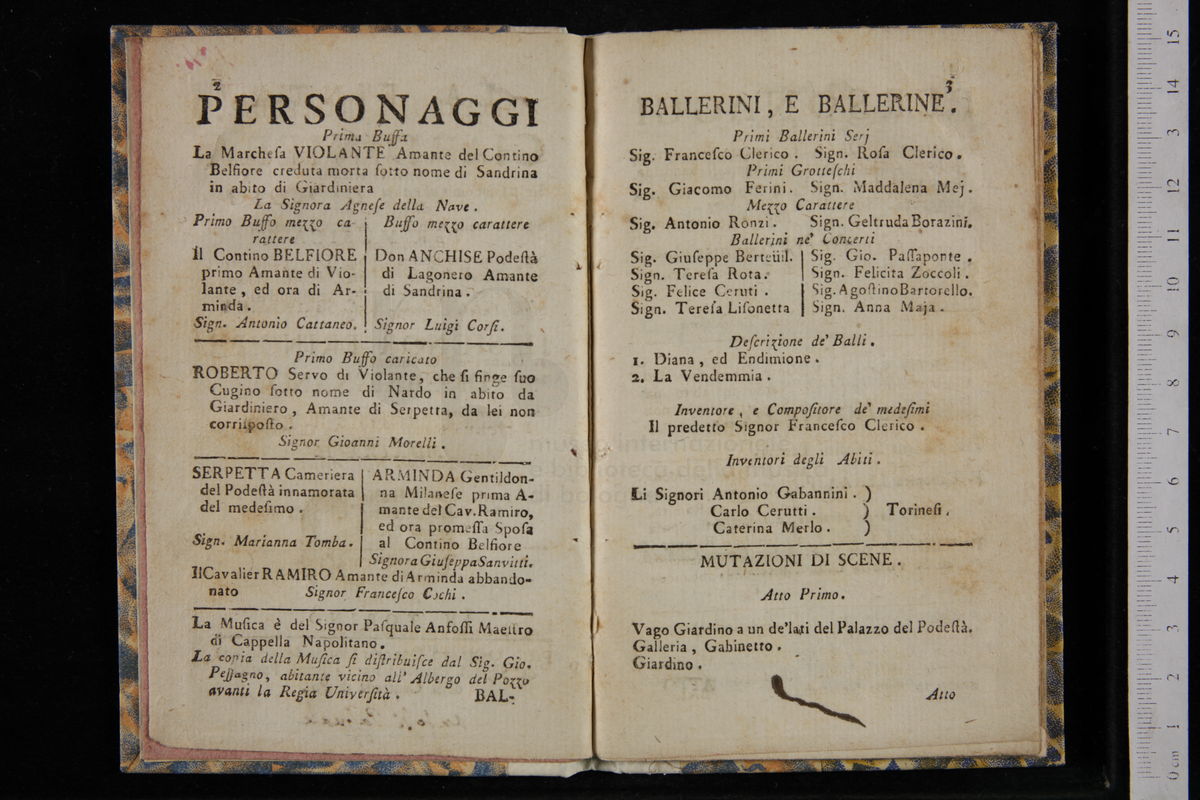 2
PERSONAGGI
Prima Buffa
La Marcheſa VIOLANTE Amante del Contino
Belfiore creduta morta ſotto nome di Sandrina
in abito di Giardiniera
La Signora Agneſe della Nave.
Primo Buffo mezzo ca-
rattere
Il Contino BELFIORE
primo Amante di Vio-
lante, ed ora di Ar-
minda.
Sign. Antonio Cattaneo.
Buffo mezzo carattere
Don ANCHISE Podeſtà
di Lagonero Amante
di Sandrina.
Signor Luigi Corſi.
Primo Buffo caricato
ROBERTO Servo di Violante, che ſi finge ſuo
Cugino ſotto nome di Nardo in abito da
Giardiniero, Amante di Serpetta, da lei non
corriſpoſto.
Signor Gioanni Morelli.
SERPETTA Cameriera
del Podeſtà innamorata
del medeſimo.
Sign. Marianna Tomba.
ARMINDA Gentildon-
na Milaneſe prima A-
mante del Cav. Ramiro,
ed ora promeſſa Spoſa
al Contino Belfiore
Signora Giuſeppa Sanvitti.
Il Cavalier RAMIRO Amante di Arminda abbando-
nato Signor Franceſco Cochi.
La Muſica è del Signor Paſquale Anfoſſi Maeſtro
di Cappella Napolitano.
La copia della Muſica ſi diſtribuiſce dal Sig. Gio.
Peſſagno, abitante vicino all' Albergo del Pozzo
avanti la Regia Univerſità. BAL-
3
BALLERINI, E BALLERINE.
Primi Ballerini Serj
Sig. Franceſco Clerico. Sign. Roſa Clerico.
Primi Grotteſchi
Sig. Giacomo Ferini. Sign. Maddalena Mej.
Mezzo Carattere
Sig. Antonio Ronzi. Sign. Geltruda Borazini.
Ballerini ne' Concerti
Sig. Giuſeppe Berteüil.
Sign. Tereſa Rota.
Sig. Felice Ceruti.
Sign. Tereſa Liſonetta
Sig. Gio. Paſſaponte.
Sign. Felicita Zoccoli.
Sig. Agoſtino Bartorello.
Sign. Anna Maja.
Deſcrizione de' Balli.
1. Diana, ed Endimione.
2. La Vendemmia.
Inventore, e Compoſitore de' medeſimi
Il predetto Signor Franceſco Clerico.
Inventori degli Abiti.
Li Signori Antonio Gabannini. )
Carlo Cerutti. ) Torineſi.
Caterina Merlo. )
MUTAZIONI DI SCENE.
Atto Primo.
Vago Giardino a un de' lati del Palazzo del Podeſtà.
Galleria, Gabinetto.
Giardino.
Atto
0 cm 1 2 3 4 5 6 7 8 9 10 11 12 3 14 15